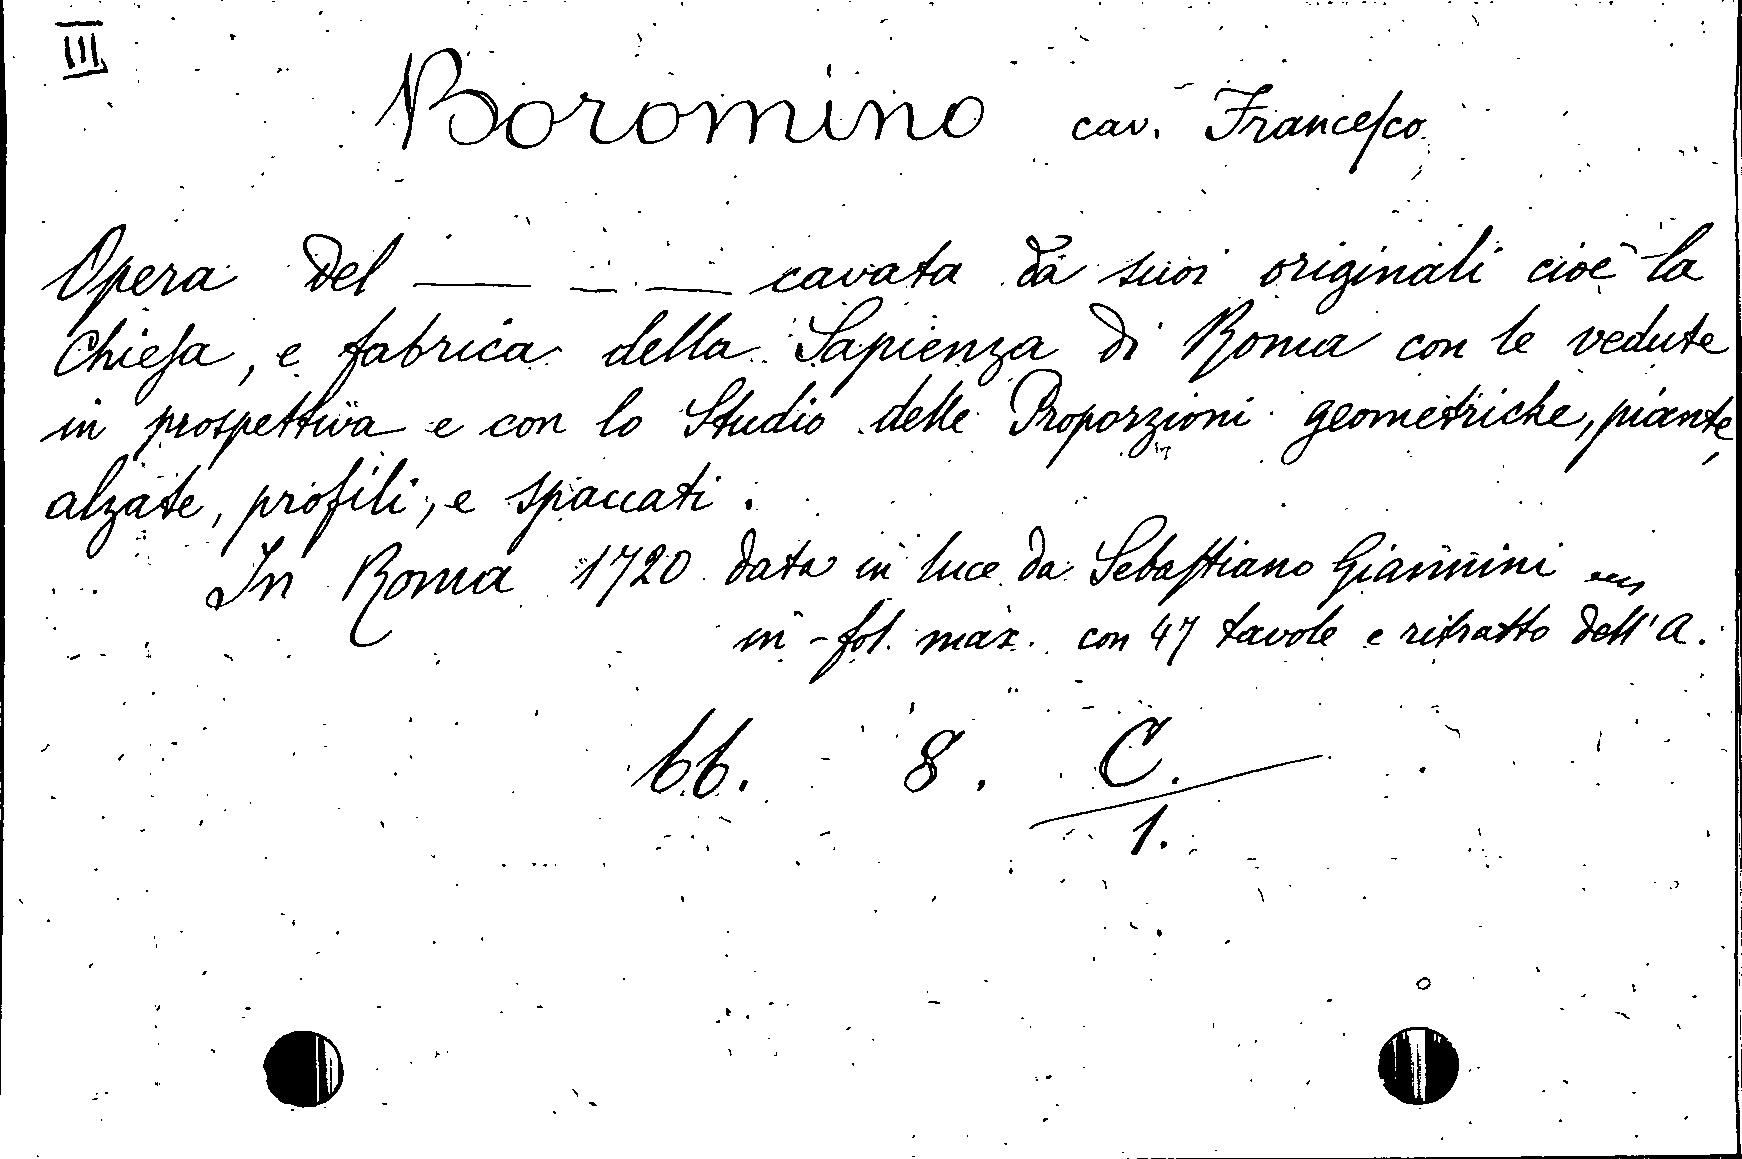 III
Boromino cav. Francesco
Opera del — — — cavata da suoi originali cioè la
Chiesa, e fabrica della Sapienza di Roma con le vedute
in prospettiva e con lo Studio delle Proporzioni geometriche, piante,
alzate, profili, e spaccati.
In Roma 1720 data in luce da Sebastiano Giannini
in-fol. max. con 47 tavole e ritratto dell'A.
66. 8. C.
1.